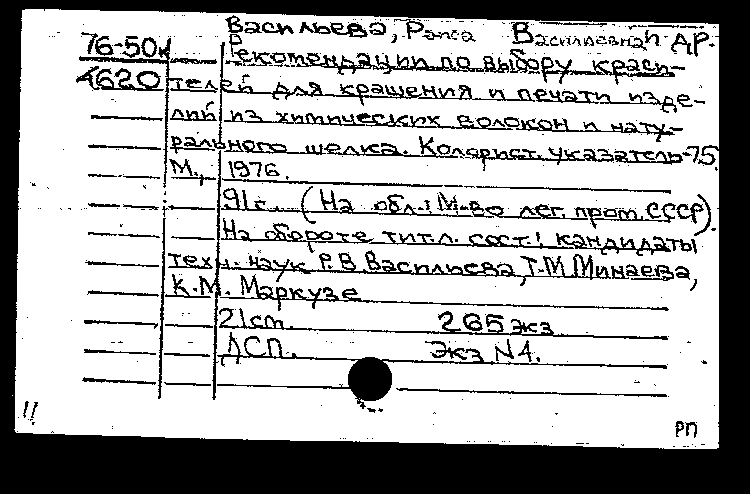 Васильева, Раиса Васильевна и др.
76-50м
Рекомендации по выбору краси-
4620 телей для крашения и печати изде-
лий из химических волокон и нату-
рального шелка. Колорист. указатель-75.
М., 1976.
91с. (На обл.: М-во лег. пром. СССР).
На обороте тит.л. сост.: кандидаты
техн. наук Р.В. Васильева, Т.М. Минаева,
К.М. Маркузе
21см. 265 экз
ДСП. Экз N4.
11
РП